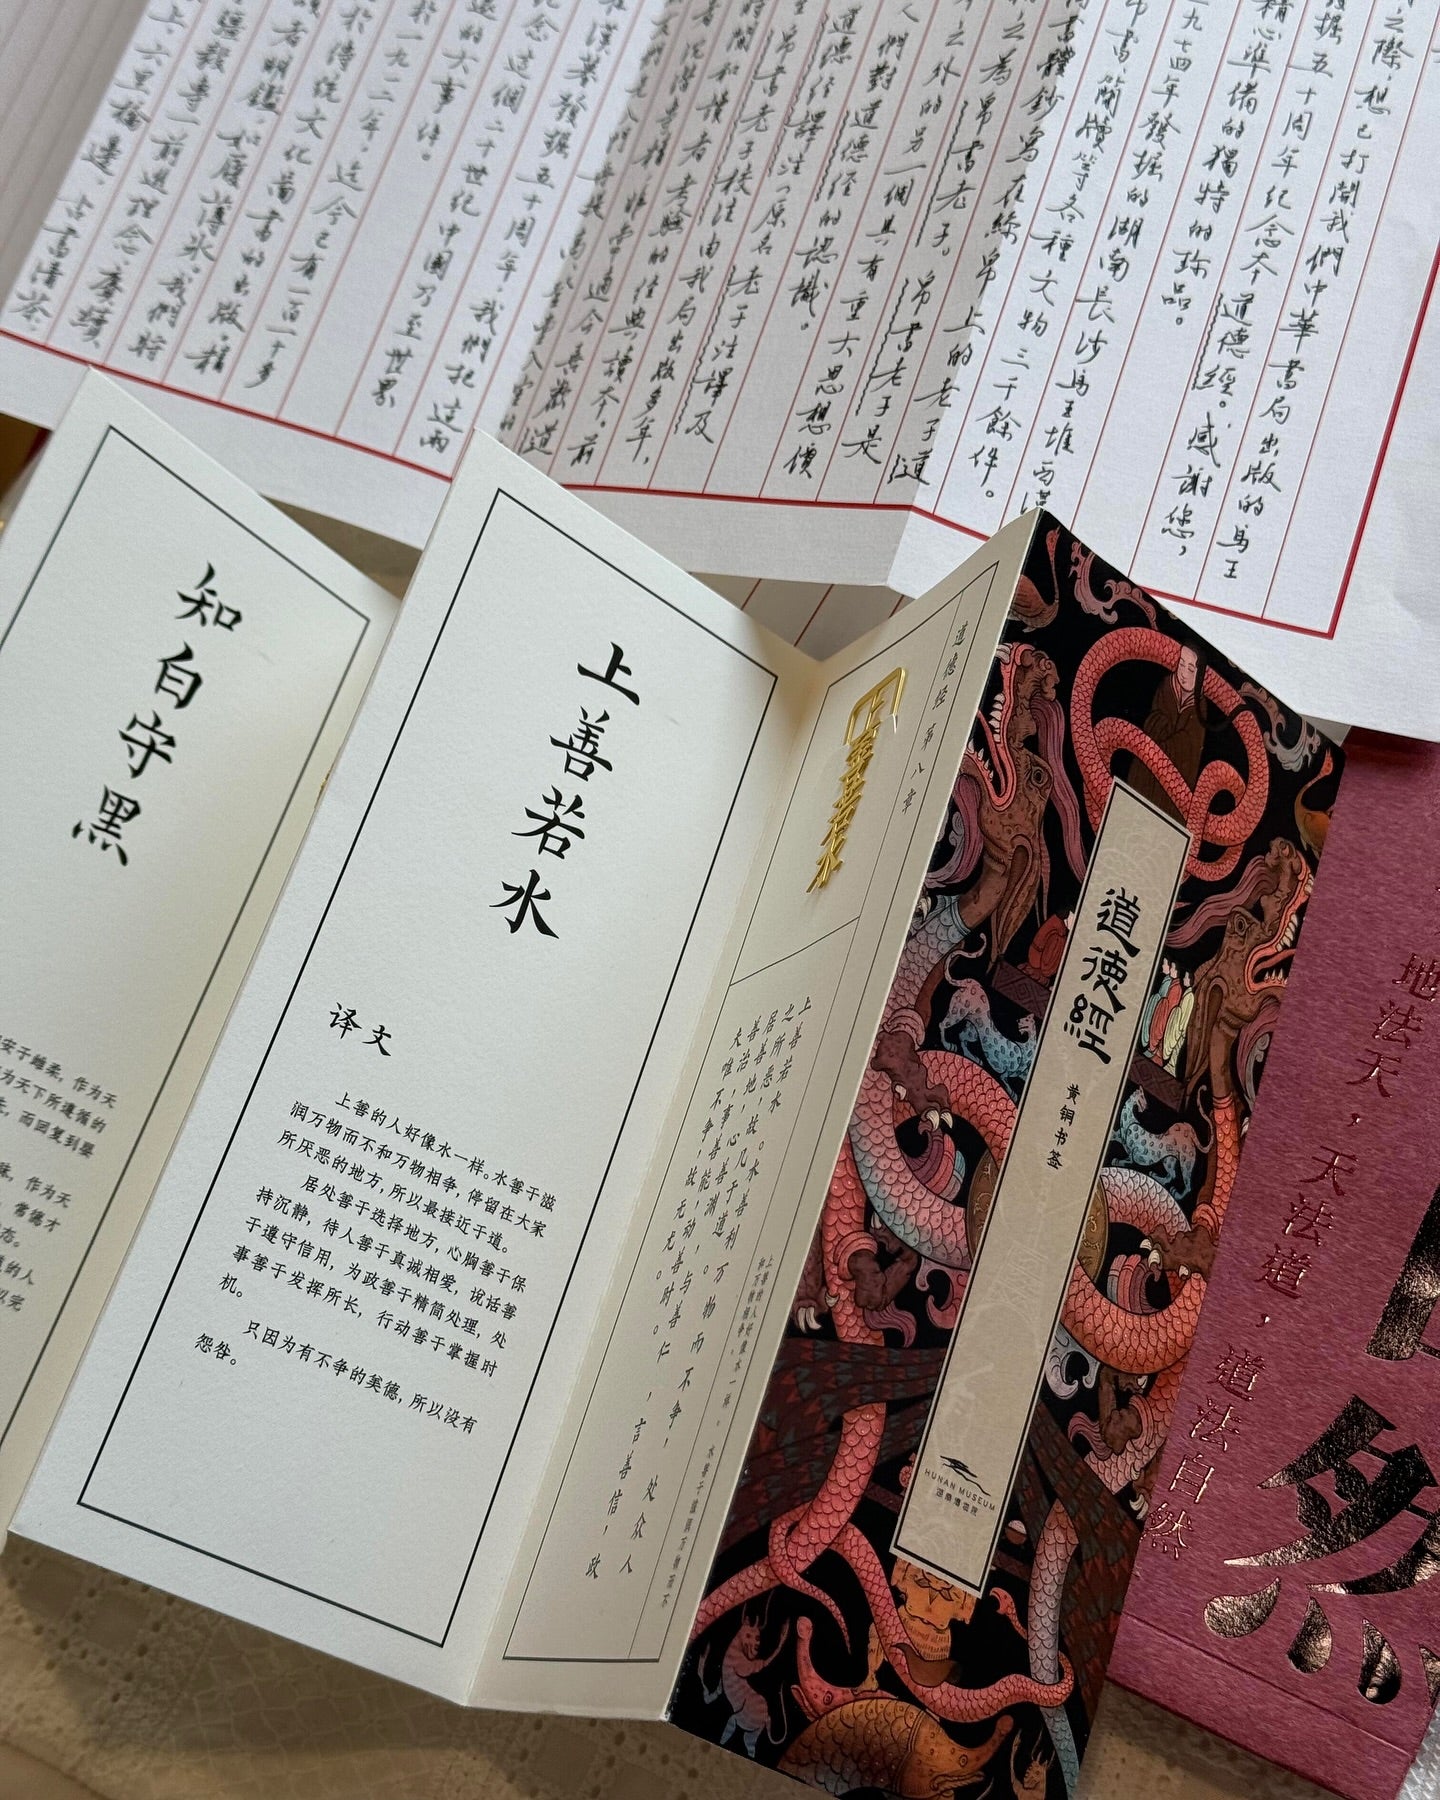 之際,想已打開我們中華書局出版的馬王
發掘五十周年紀念本道德經。感謝您,
精心準備的獨特的珍品。
九七四年發掘的湖南長沙馬王堆西漢
帛書、簡牘等各種文物三千餘件。
書體鈔寫在絲帛上的老子道
之為帛書老子。帛書老子是
之外的另一個具有重大思想價
人們對道德經的認識。
道德經譯注(原名老子注譯及
帛書老子校注由我局出版多年,
時間和讀者考驗的經典讀本。前
漢墓發掘五十周年,我們把這兩
念這個二十世紀中國乃至世界
的大事件。
於一九一二年,迄今已有一百一十多
於傳統文化圖書的出版,積
明鑑,如履薄冰。我們將
強毅專一前進理念,賡續
上,六里橋邊,古書清茶,
地法天,天法道,道法自然
然
道德經
黄铜书签
HUNAN MUSEUM
湖南博物院
道德经第八章
上善若水
上善若水。水善利万物而不争,处众人
之所恶,故几于道。
居善地,心善渊,与善仁,言善信,政
善治,事善能,动善时。
夫唯不争,故无尤。
上善若水
译文
上善的人好像水一样。水善于滋
润万物而不和万物相争,停留在大家
所厌恶的地方,所以最接近于道。
居处善于选择地方,心胸善于保
持沉静,待人善于真诚相爱,说话善
于遵守信用,为政善于精简处理,处
事善于发挥所长,行动善于掌握时
机。
只因为有不争的美德,所以没有
怨咎。
知白守黑
安于雌柔,作为天
为天下所遵循的
而回复到婴
作为天
常德才
态。
的人
以完